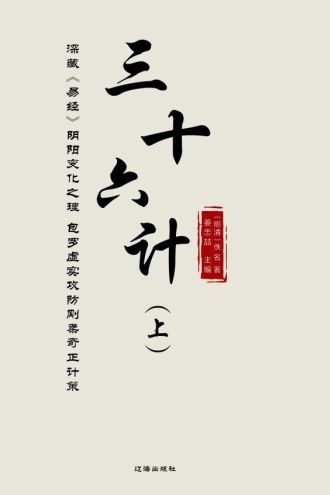 三十六计
（上）
（明清）佚名 著
姜忠喆 主编
深藏《易经》阴阳变化之理 包罗虚实攻防刚柔奇正计策
辽海出版社